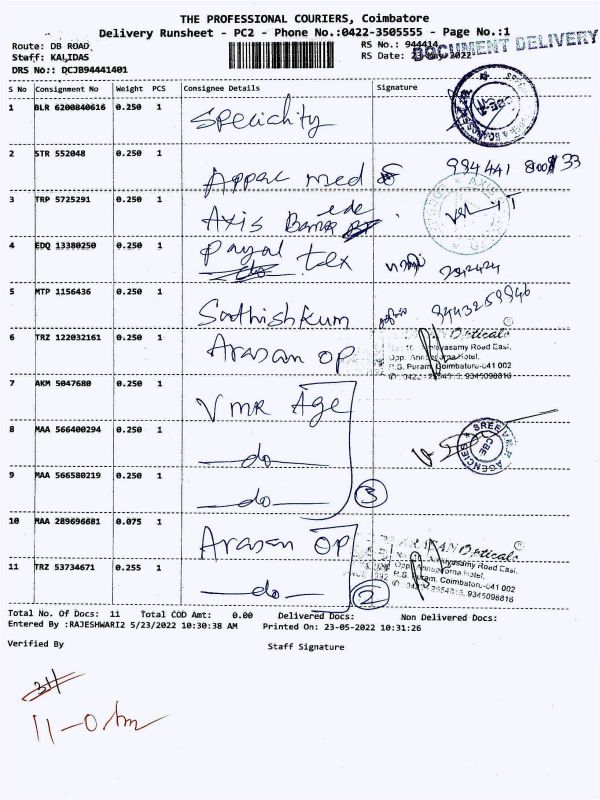 THE PROFESSIONAL COURIERS, Coimbatore
Delivery Runsheet - PC2 - Phone No.:0422-3505555 - Page No.:1
Route: DB ROAD
RS No.: 944414
DOCUMENT DELIVERY
Staff: KALIDAS
RS Date: 23-May-2022
DRS No:: DCJB94441401
S No Consignment No Weight PCS Consignee Details Signature
1 BLR 6200840616 0.250 1 Speciality
2 STR 552048 0.250 1 Appac med
3 TRP 5725291 0.250 1 Axis Bank
4 EDQ 13380250 0.250 1 Payal tex
5 MTP 1156436 0.250 1 Sathishkum 9443259946
6 TRZ 122032161 0.250 1 Arasan OP
Opticals
Puram, Coimbatore-641 002
7 AKM 5047680 0.250 1 VMR Age
8 MAA 566400294 0.250 1 do
SREE VMR AGENCIES CBE
9 MAA 566580219 0.250 1 do 3
10 MAA 289696681 0.075 1 Arasan OP
Opticals
11 TRZ 53734671 0.255 1 do 2
R.S. Puram, Coimbatore-641 002
Total No. Of Docs: 11 Total COD Amt: 0.00 Delivered Docs: Non Delivered Docs:
Entered By :RAJESHWARI2 5/23/2022 10:30:38 AM Printed On: 23-05-2022 10:31:26
Verified By Staff Signature